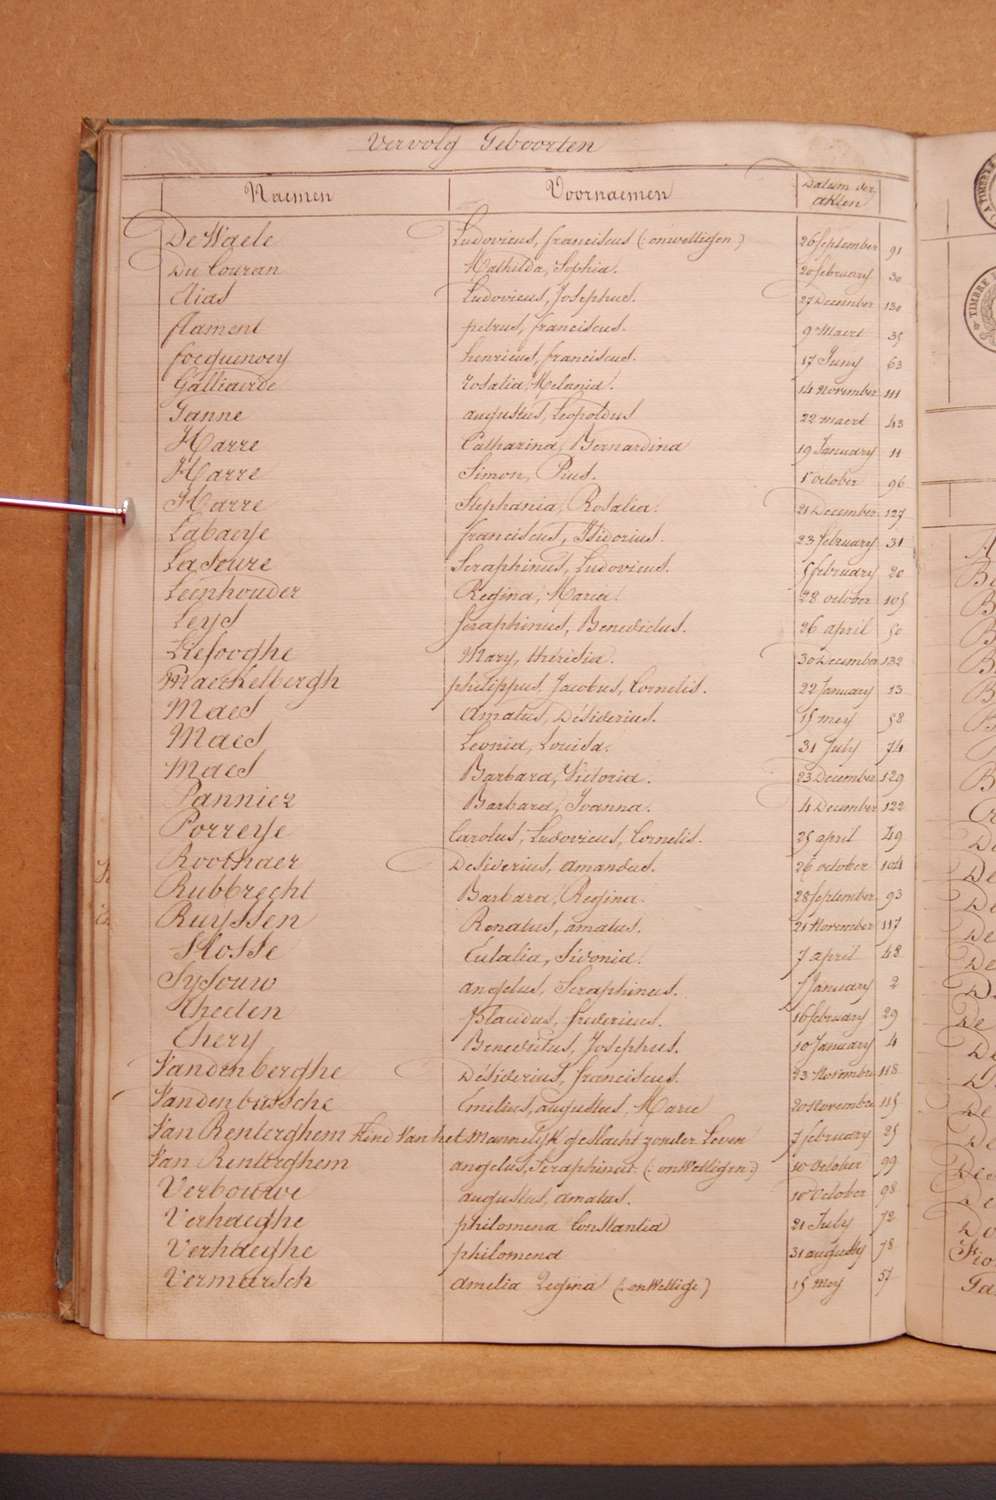 Vervolg Geboorten
Naemen Voornaemen Datum der akten
De Waele Ludovicus, franciscus (: onwettigen :) 26 September 91
Du Couran Mathilda, Sophia. 20 february 30
Elias Ludovicus, Josephus. 27 December 130
flament petrus, franciscus. 9 Maert 35
focquenoey henricus, franciscus. 17 Juny 63
Galliaerde Rosalia, Melania. 14 November 111
Ganne augustus, Leopoldus 22 maert 43
Harre Catharina, Bernardina 19 January 11
Harre Simon, Pius. 1 october 96
Harre Stephania, Rosalia. 21 December 127
Labaeye franciscus, Isidorius. 23 february 31
Lasoure Seraphinus, Ludovicus. 5 february 20
Leenhouder Regina, Maria. 28 october 105
Leys Seraphinus, Benedictus. 26 april 50
Liefooghe Mary, thérésia. 30 December 132
Maeckelbergh philippus, Jacobus, Cornelis. 22 January 13
Maes Amatus, Désiderius. 15 mey 58
Maes Leonia, Louisa. 31 July 74
Maes Barbara, Victoria. 23 December 129
Pannier Barbara, Joanna. 4 December 122
Porreye Carolus, Ludovicus, Cornelis. 25 april 49
Roothaer Desiderius, amandus. 26 october 104
Rubbrecht Barbara, Regina. 28 September 93
Ruyssen Renatus, amatus. 21 November 117
Slosse Eulalia, Sivonia. 7 april 48
Sysouw angelus, Seraphinus. 7 January 2
Theeten Placidus, fredericus. 16 february 29
Thery Benedictus, Josephus. 10 January 4
Vandenberghe Désiderius, franciscus. 23 November 118
Vandenbussche Emilius, augustus, Marie 20 November 115
Van Renterghem Kind Van het Mannelijk geslacht zonder Leven 7 february 25
Van Renterghem angelus, Seraphinus. (: onWettigen :) 10 October 99
Verbouwe augustus, amatus. 10 October 98
Verhaeghe philomena Constantia 21 July 72
Verhaeghe philomena 31 augusty 78
Vermarsch Amelia Regina (: onWettige) 15 Mey 57